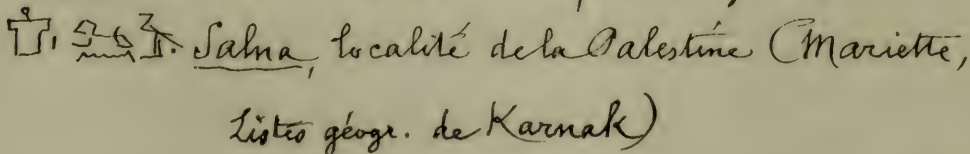 Salna, localité de la Palestine (Mariette,
Listes géogr. de Karnak)